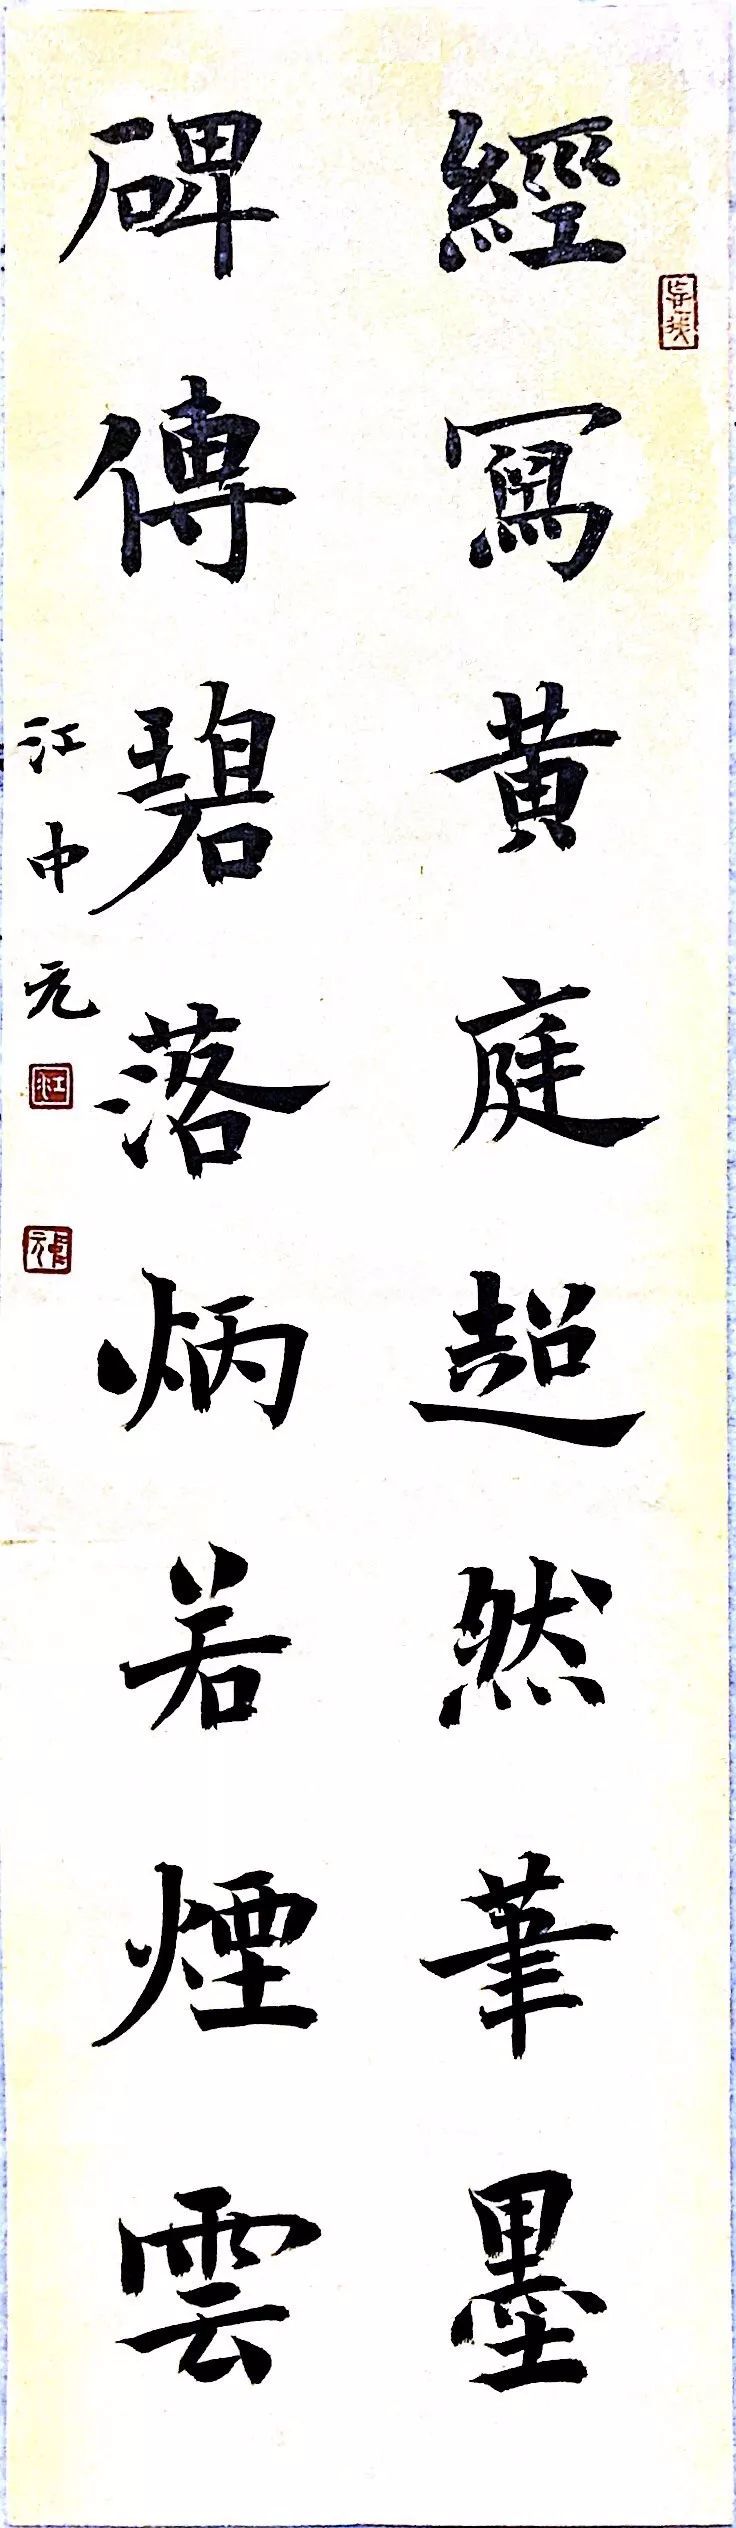 經寫黃庭超然筆墨
碑傳碧落炳若煙雲
江中元
江